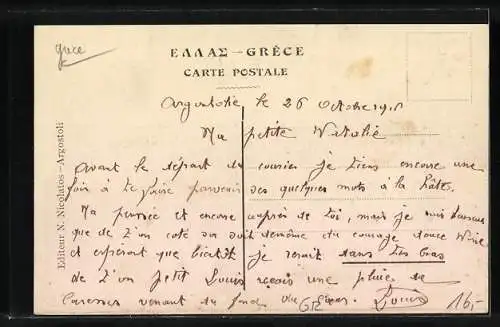 grece
ΕΛΛΑΣ – GRÈCE
CARTE POSTALE
Editeur N. Nicolatos – Argostoli
le 26 Octobre
Ma petite Natalie
Avant le départ du courier je viens encore une
fois à te faire parvenir ces quelques mots à la hâte.
Ma pensée et encore auprès de toi, mais je suis
que de ton coté du courage
et espérant que bientôt je serait dans tes bras
de ton petit Louis recois une pluie de
caresses venant du fond du Louis
16,-